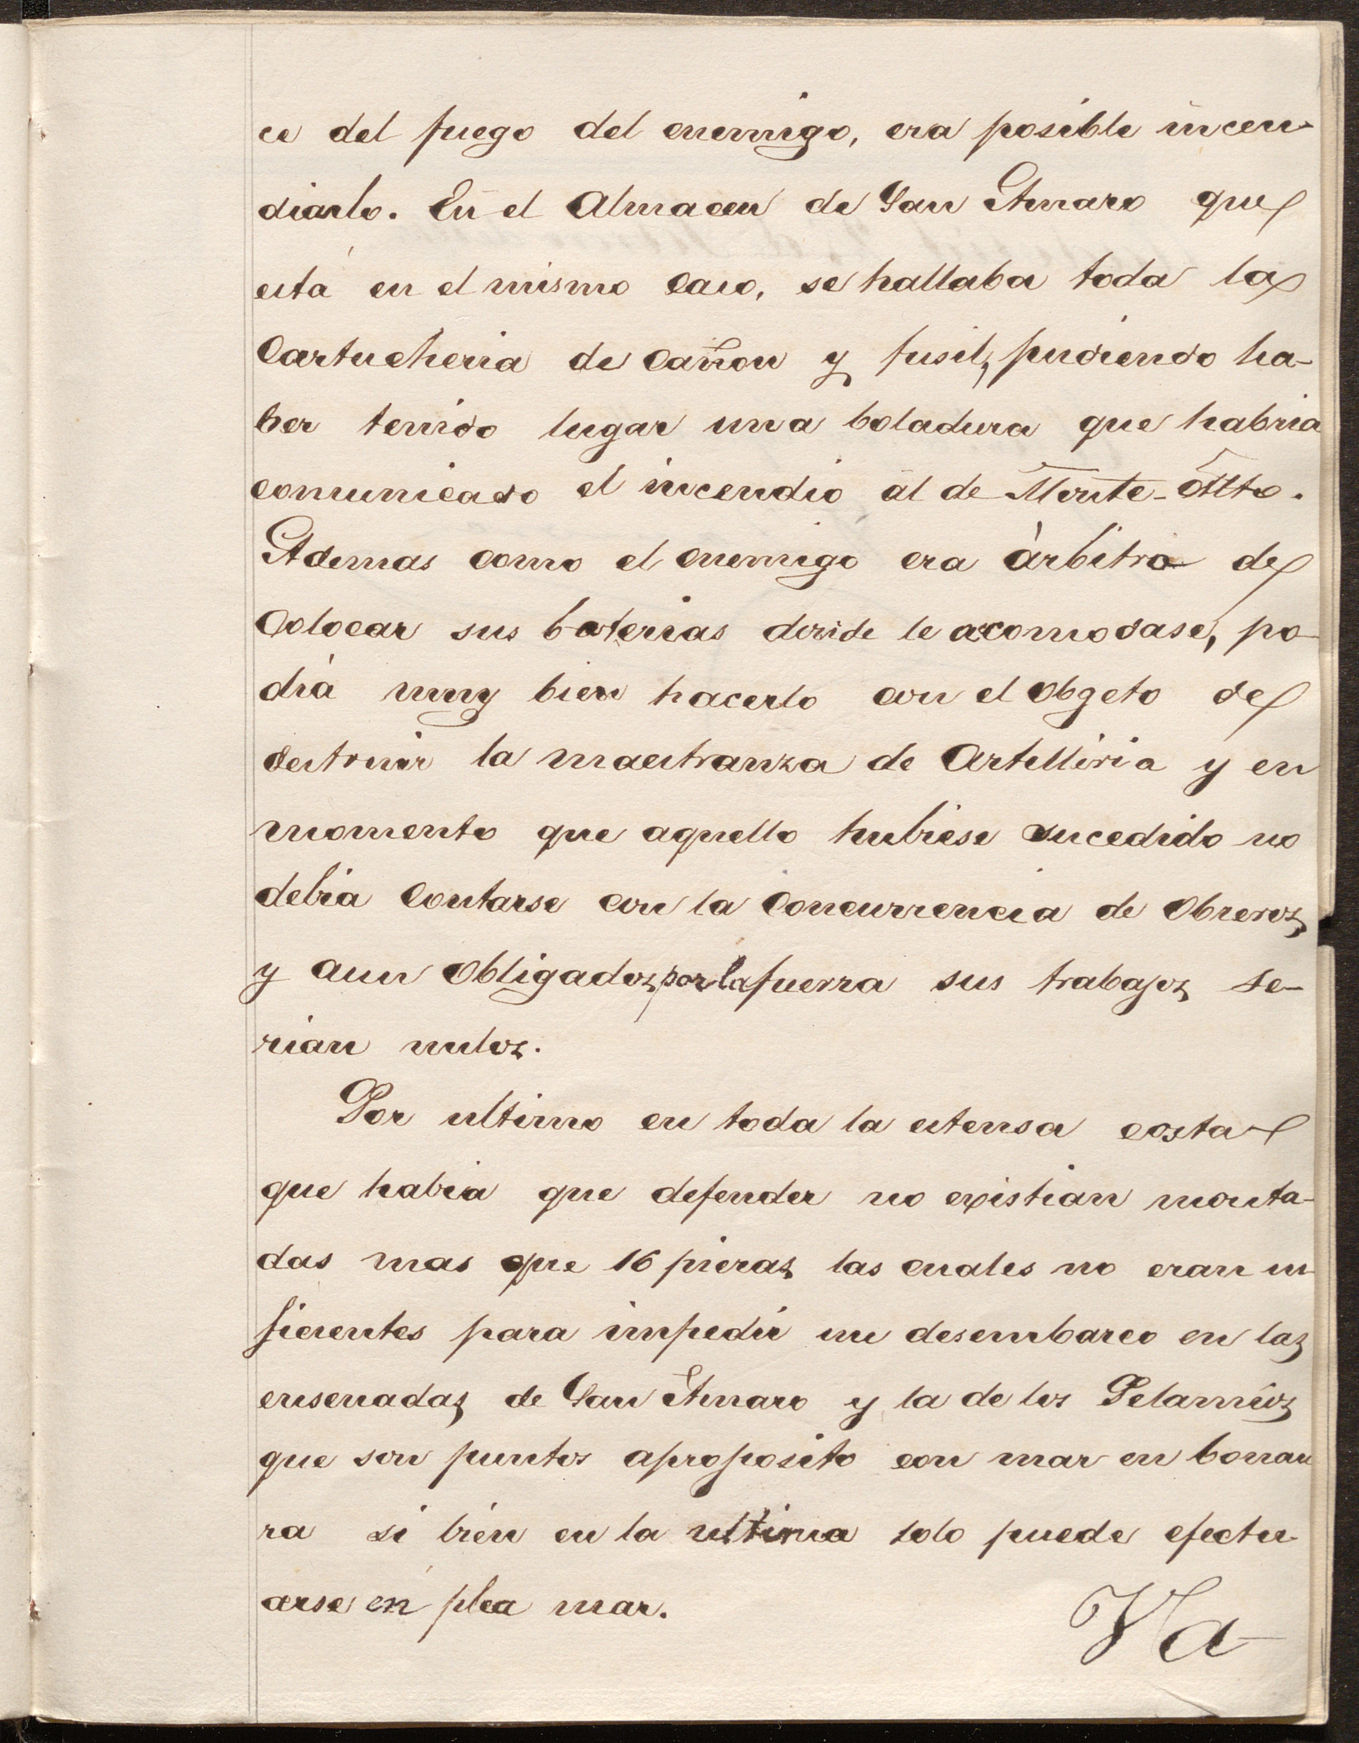 ce del fuego del enemigo, era posible incen-
diarlo. En el Almacen de San Amaro que
está en el mismo caso, se hallaba toda la
Cartucheria de Cañon y fusil, pudiendo ha-
ber tenido lugar una boladura que habria
comunicado el incendio al de Monte-Alto.
Ademas como el enemigo era àrbitro de
Colocar sus baterias desde le acomodase, po-
drá muy bien hacerlo con el obgeto de
destruir la maestranza de Artilleria y en
momento que aquello hubiese sucedido no
debia Contarse con la Concurrencia de Obreros,
y aun obligados por la fuerza sus trabajos se-
rian nulos.
Por ultimo en toda la estensa costa
que habia que defender no existian monta-
das mas que 16 piezas las cuales no eran su-
ficientes para impedir un desembarco en las
ensenadas de San Amaro y la de los Pelamios
que son puntos aproposito con mar en bonan
za si bien en la ultima solo puede efectu-
arse en plea mar.
Va